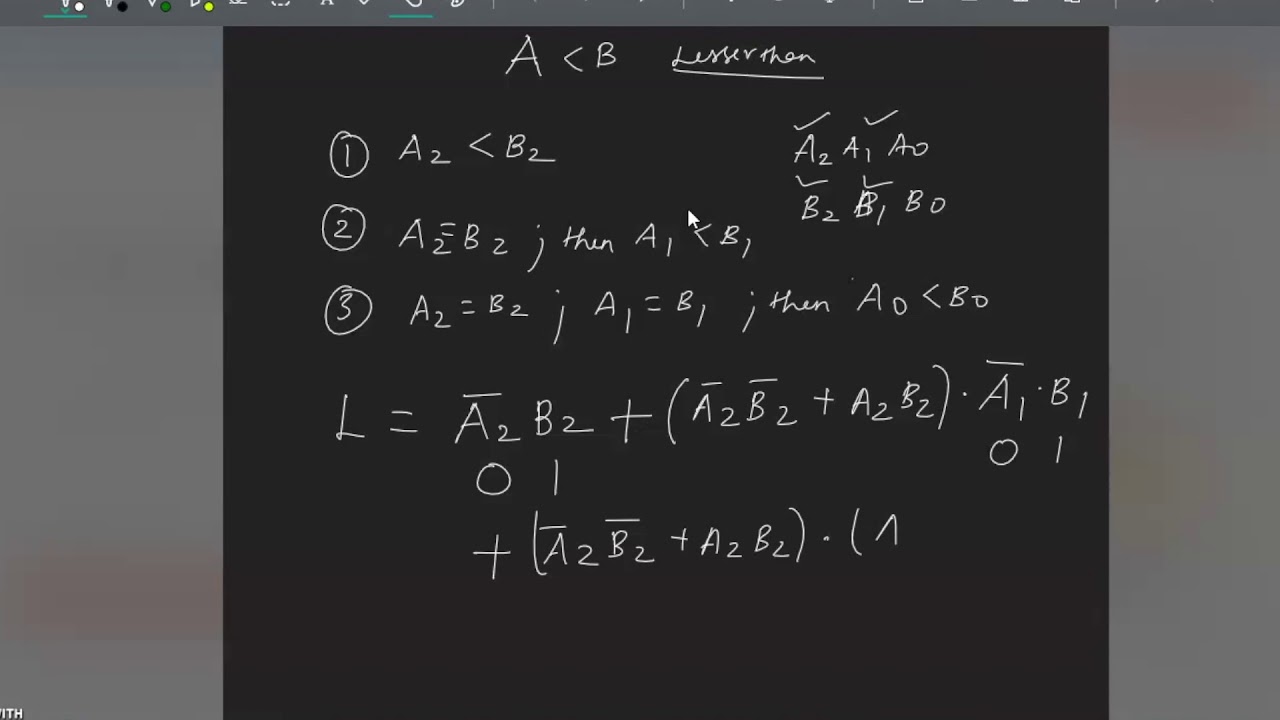 A < B Lesser than
① A₂ < B₂
A₂ A₁ A0
B₂ B₁ B0
② A₂ = B₂ ; then A₁ < B₁
③ A₂ = B₂ ; A₁ = B₁ ; then A0 < B0
L = A̅₂ B₂ + (A̅₂ B̅₂ + A₂ B₂) · A̅₁ · B₁
0 1 0 1
+ (A̅₂ B̅₂ + A₂ B₂) · ( A
WITH